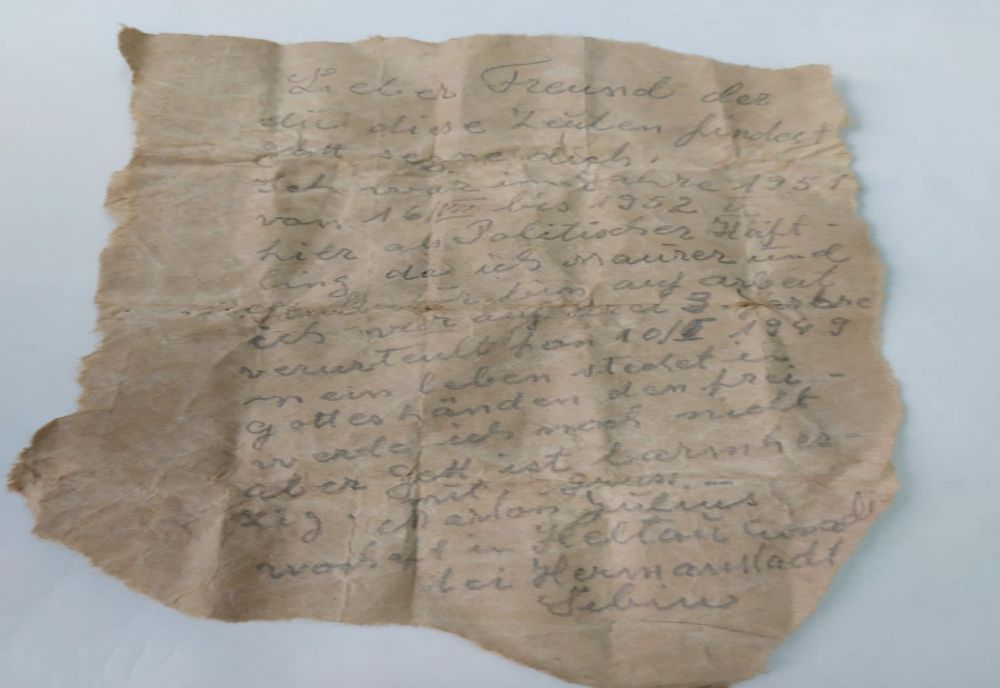 Lieber Freund der
du diese Zeilen findest
Gott segne dich.
Ich war im Jahre 1951
von 16/VIII bis 1952 II
hier als Politischer Häft-
ling da ich Maurer und
war hier auf arbeit
ich war auf drei 3 Jahre
verurteilt von 10/II 1949
mein leben stehet in
gottes händen den frei-
werde ich noch nicht
aber gott ist barmher-
zig. mit gruss.-
Marton Julius
wohaft in Heltau
bei Hermanstadt
Sebiu